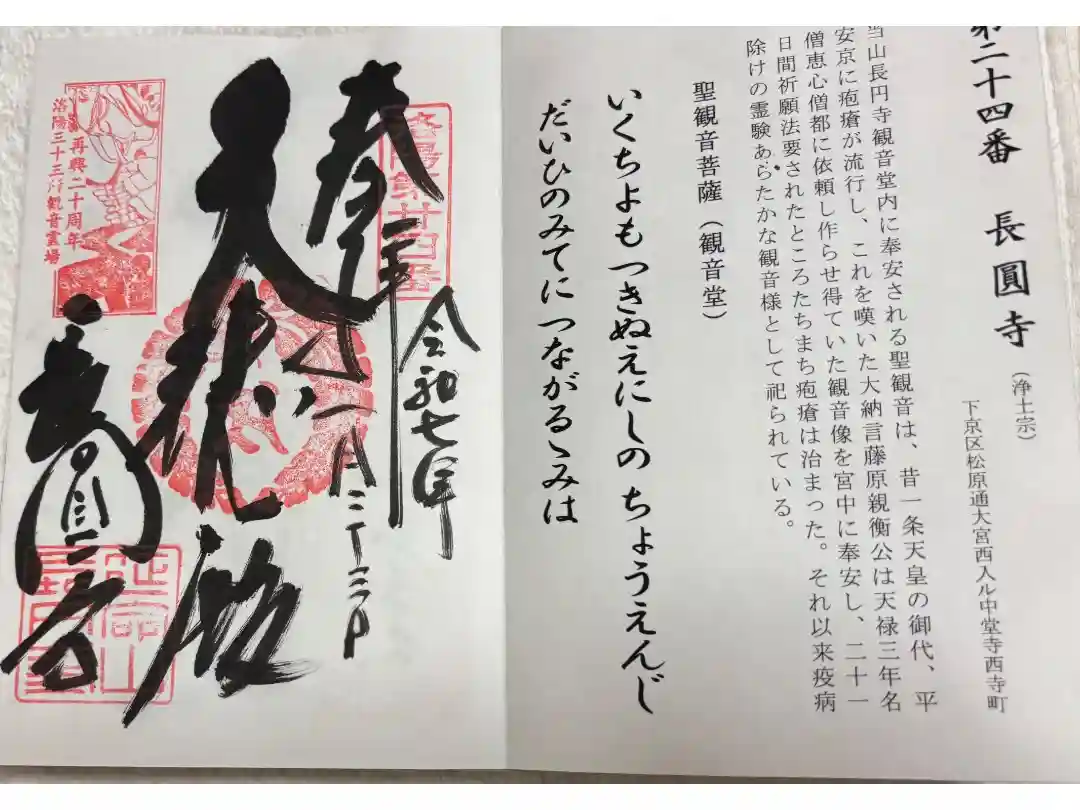 第二十四番 長圓寺(浄土宗)
下京区松原通大宮西入ル中堂寺西寺町
当山長円寺観音堂内に奉安される聖観音は、昔一条天皇の御代、平
安京に疱瘡が流行し、これを嘆いた大納言藤原親衡公は天禄三年名
僧恵心僧都に依頼し作らせ得ていた観音像を宮中に奉安し、二十一
日間祈願法要されたところたちまち疱瘡は治まった。それ以来疫病
除けの霊験あらたかな観音様として祀られている。
聖観音菩薩(観音堂)
いくちよもつきぬえにしの ちょうえんじ
だいひのみてに つながるゝみは
洛陽第廿四番
令和七年
奉拝
大悲殿
長圓寺
再興二十周年
洛陽三十三所観音霊場
延命山